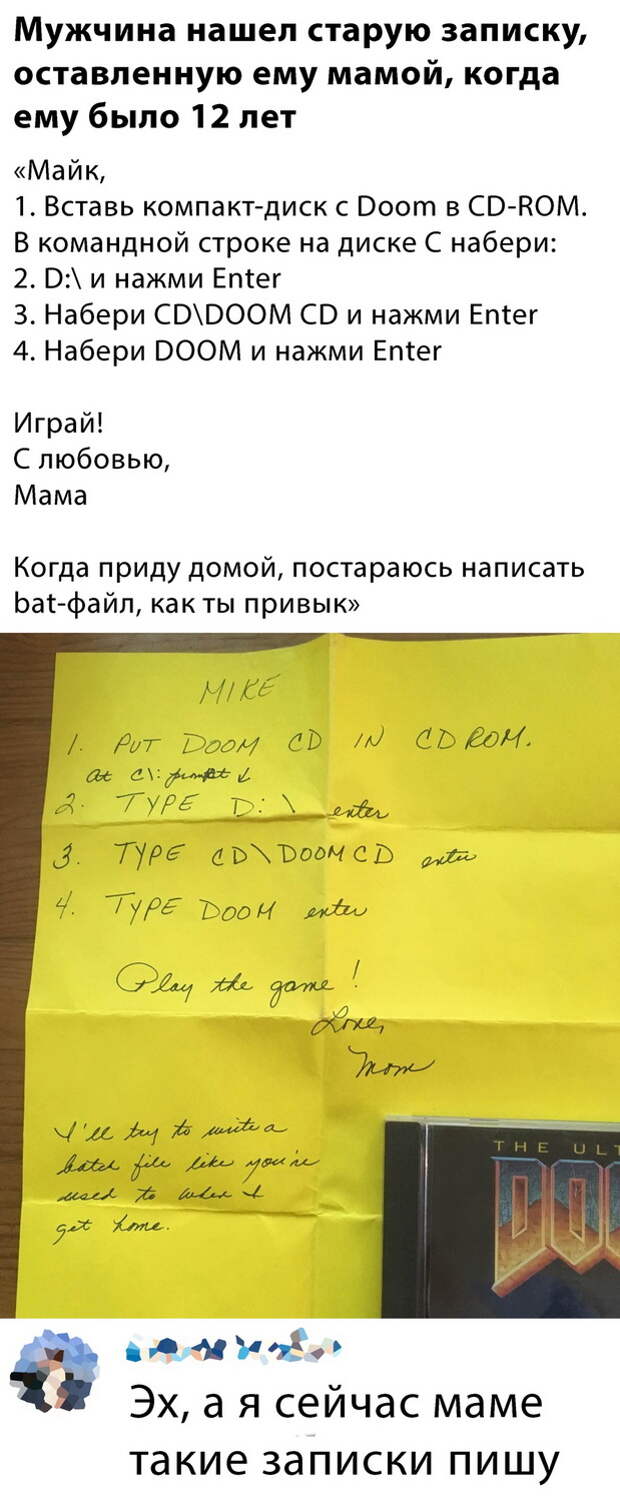 Мужчина нашел старую записку,
оставленную ему мамой, когда
ему было 12 лет
«Майк,
1. Вставь компакт-диск с Doom в CD-ROM.
В командной строке на диске С набери:
2. D:\ и нажми Enter
3. Набери CD\DOOM CD и нажми Enter
4. Набери DOOM и нажми Enter
Играй!
С любовью,
Мама
Когда приду домой, постараюсь написать
bat-файл, как ты привык»
MIKE
1. PUT DOOM CD IN CD ROM.
at C\: prompt ↓
2. TYPE D:\ enter
3. TYPE CD\DOOM CD enter
4. TYPE DOOM enter
Play the game!
Love,
Mom
I'll try to write a
batch file like you're
used to when I
get home.
THE ULT
DOO
Эх, а я сейчас маме
такие записки пишу